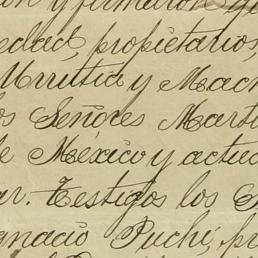 y firmaron
edad, propietarios,
Urrutia y Mac
os Señores Mart
de México y actua
ar. Testigos los S
gnacio Puchi, pr